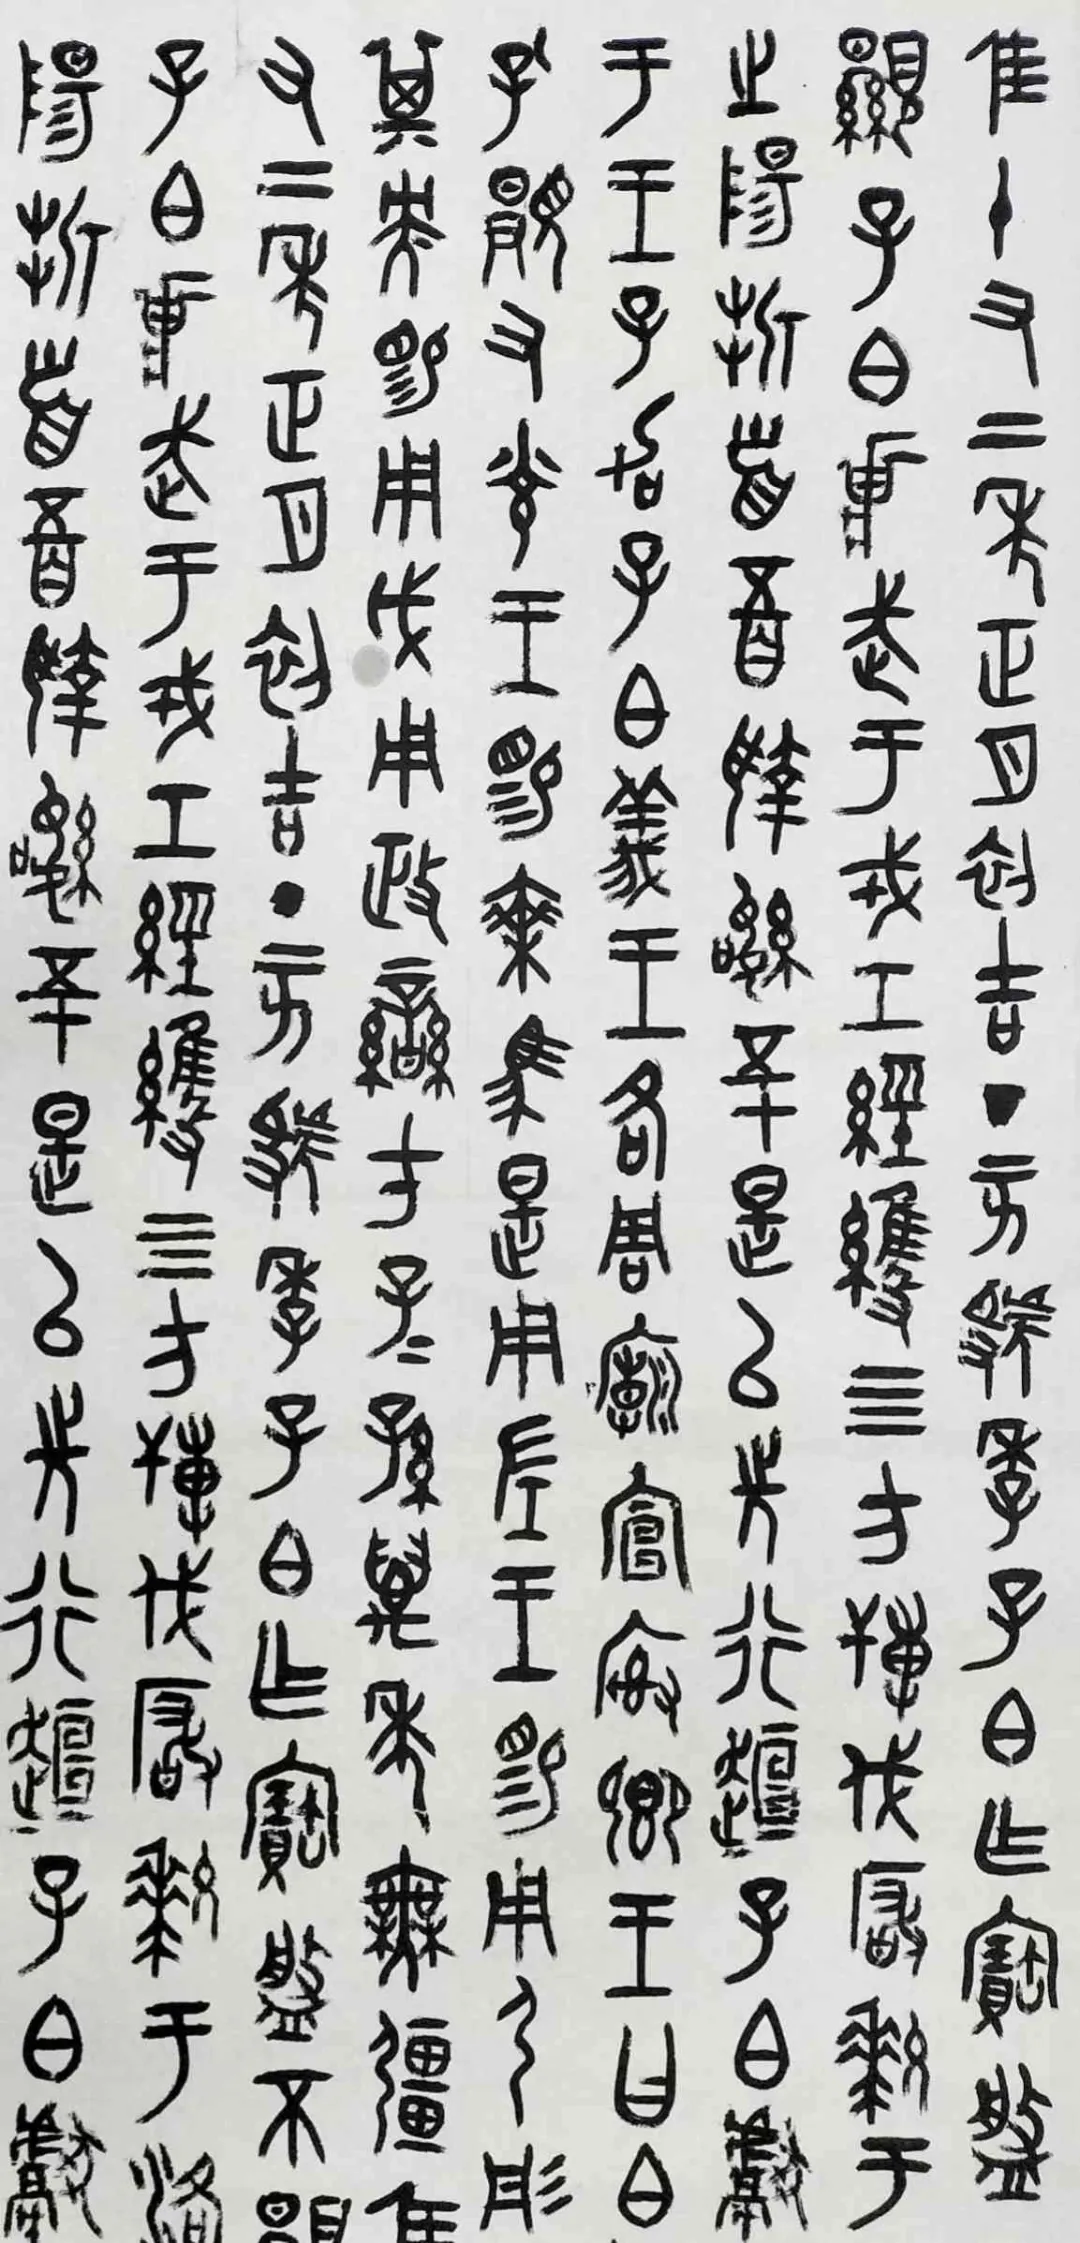 隹十又二年正月初吉丁亥虢季子白乍寶盤
顯子白壯武于戎工經維四方搏伐玁狁于
之陽折首五百執訊五十是以先行桓子白獻
于王孔加子白義王各周廟宣榭卿王曰白
孔顯又光王賜乘馬是用左王賜用弓彤
其央賜用戉用政蠻方子=孫萬年無疆隹
又二年正月初吉丁亥虢季子白乍寶盤不顯
子白壯武于戎工經維四方搏伐玁狁于洛
陽折首五百執訊五十是以先行桓子白獻